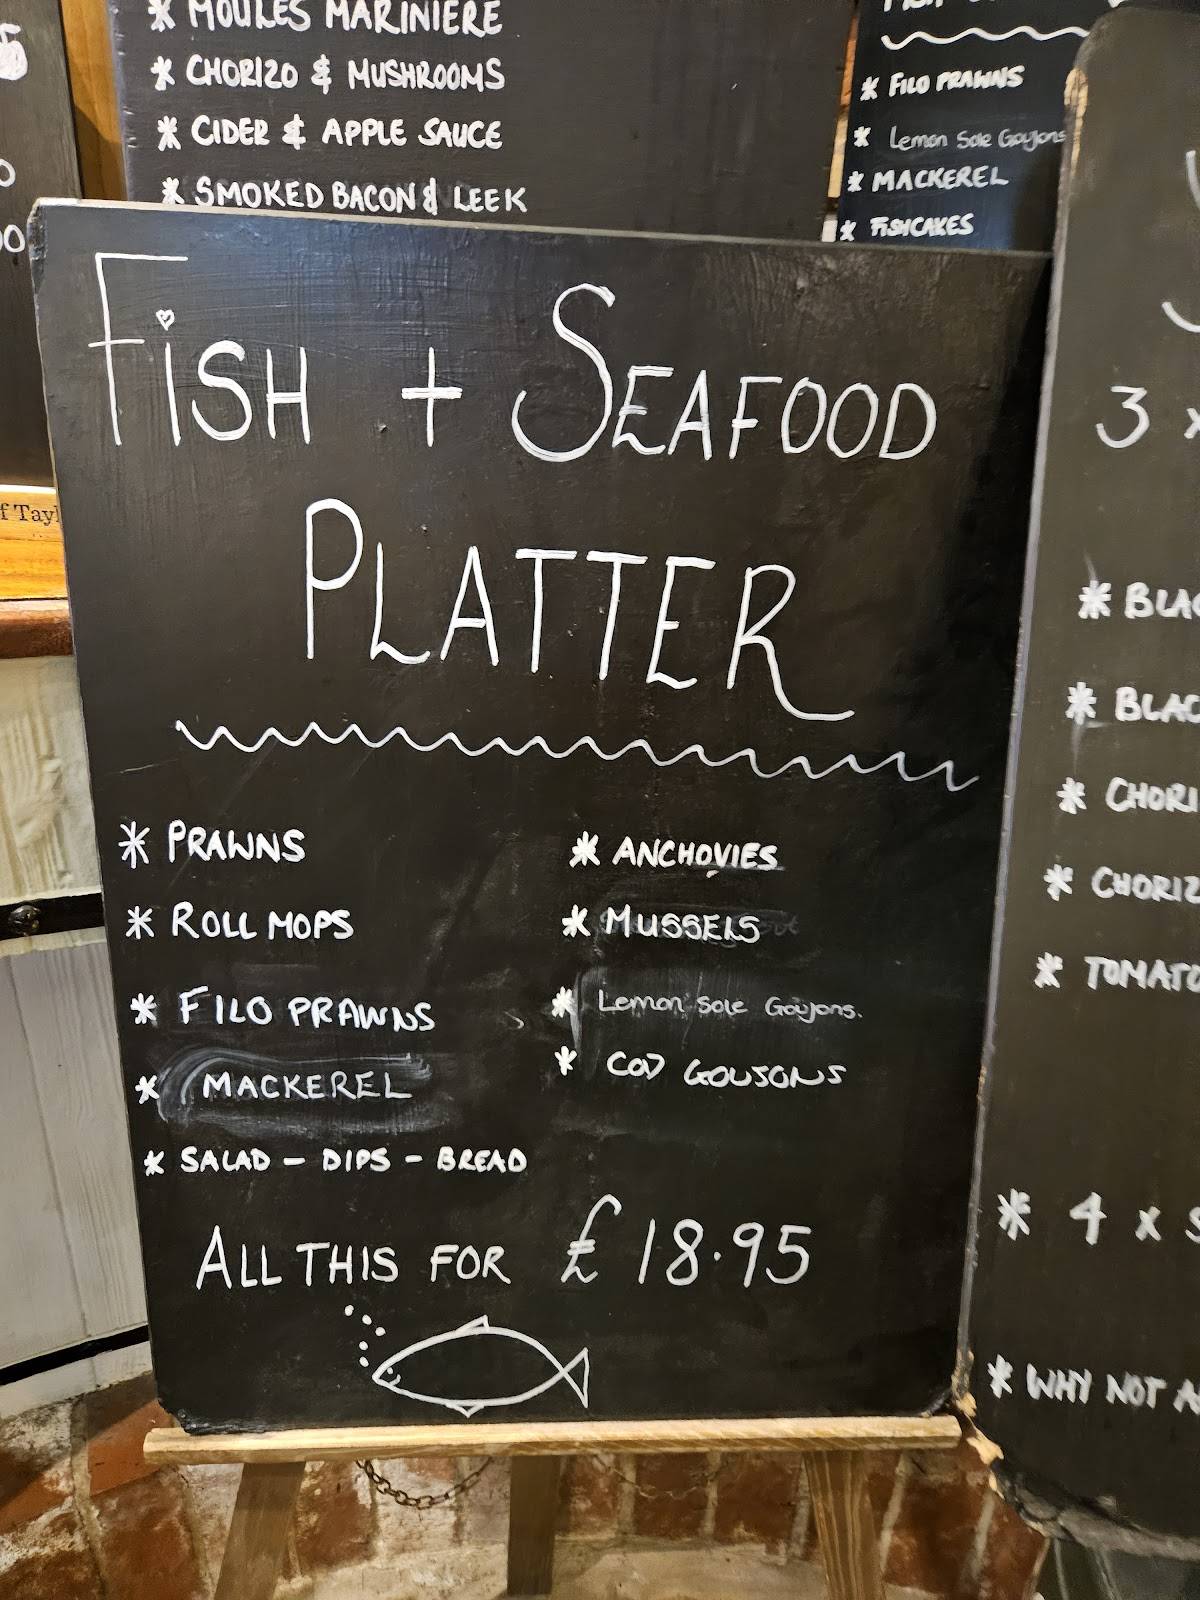 * MOULES MARINIERE
* CHORIZO & MUSHROOMS
* CIDER & APPLE SAUCE
* SMOKED BACON & LEEK
* FILO PRAWNS
* Lemon Sole Goujons
* MACKEREL
* FISHCAKES
FiSH + SEAFOOD
PLATTER
* PRAWNS
* ROLL MOPS
* FILO PRAWNS
* MACKEREL
* SALAD - DIPS - BREAD
* ANCHOVIES
* MUSSELS
* Lemon Sole Goujons.
* COD GOUJONS
ALL THIS FOR £18.95
f Tayl
3 x
* BLAC
* BLAC
* CHORI
* CHORIZ
* TOMATO
* 4 x S
* WHY NOT A